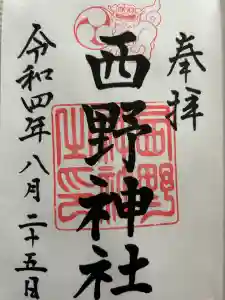 奉拝
西野神社
令和四年八月二十五日